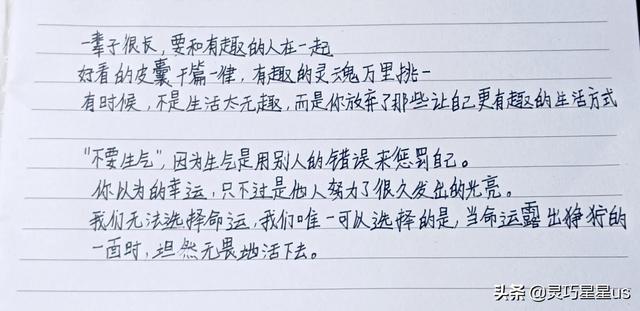 一辈子很长，要和有趣的人在一起
好看的皮囊千篇一律，有趣的灵魂万里挑一
有时候，不是生活太无趣，而是你放弃了那些让自己更有趣的生活方式
"不要生气"，因为生气是用别人的错误来惩罚自己。
你以为的幸运，只不过是他人努力了很久发出的光亮。
我们无法选择命运，我们唯一可以选择的是，当命运露出狰狞的
一面时，坦然无畏地活下去。
头条@灵巧星星us